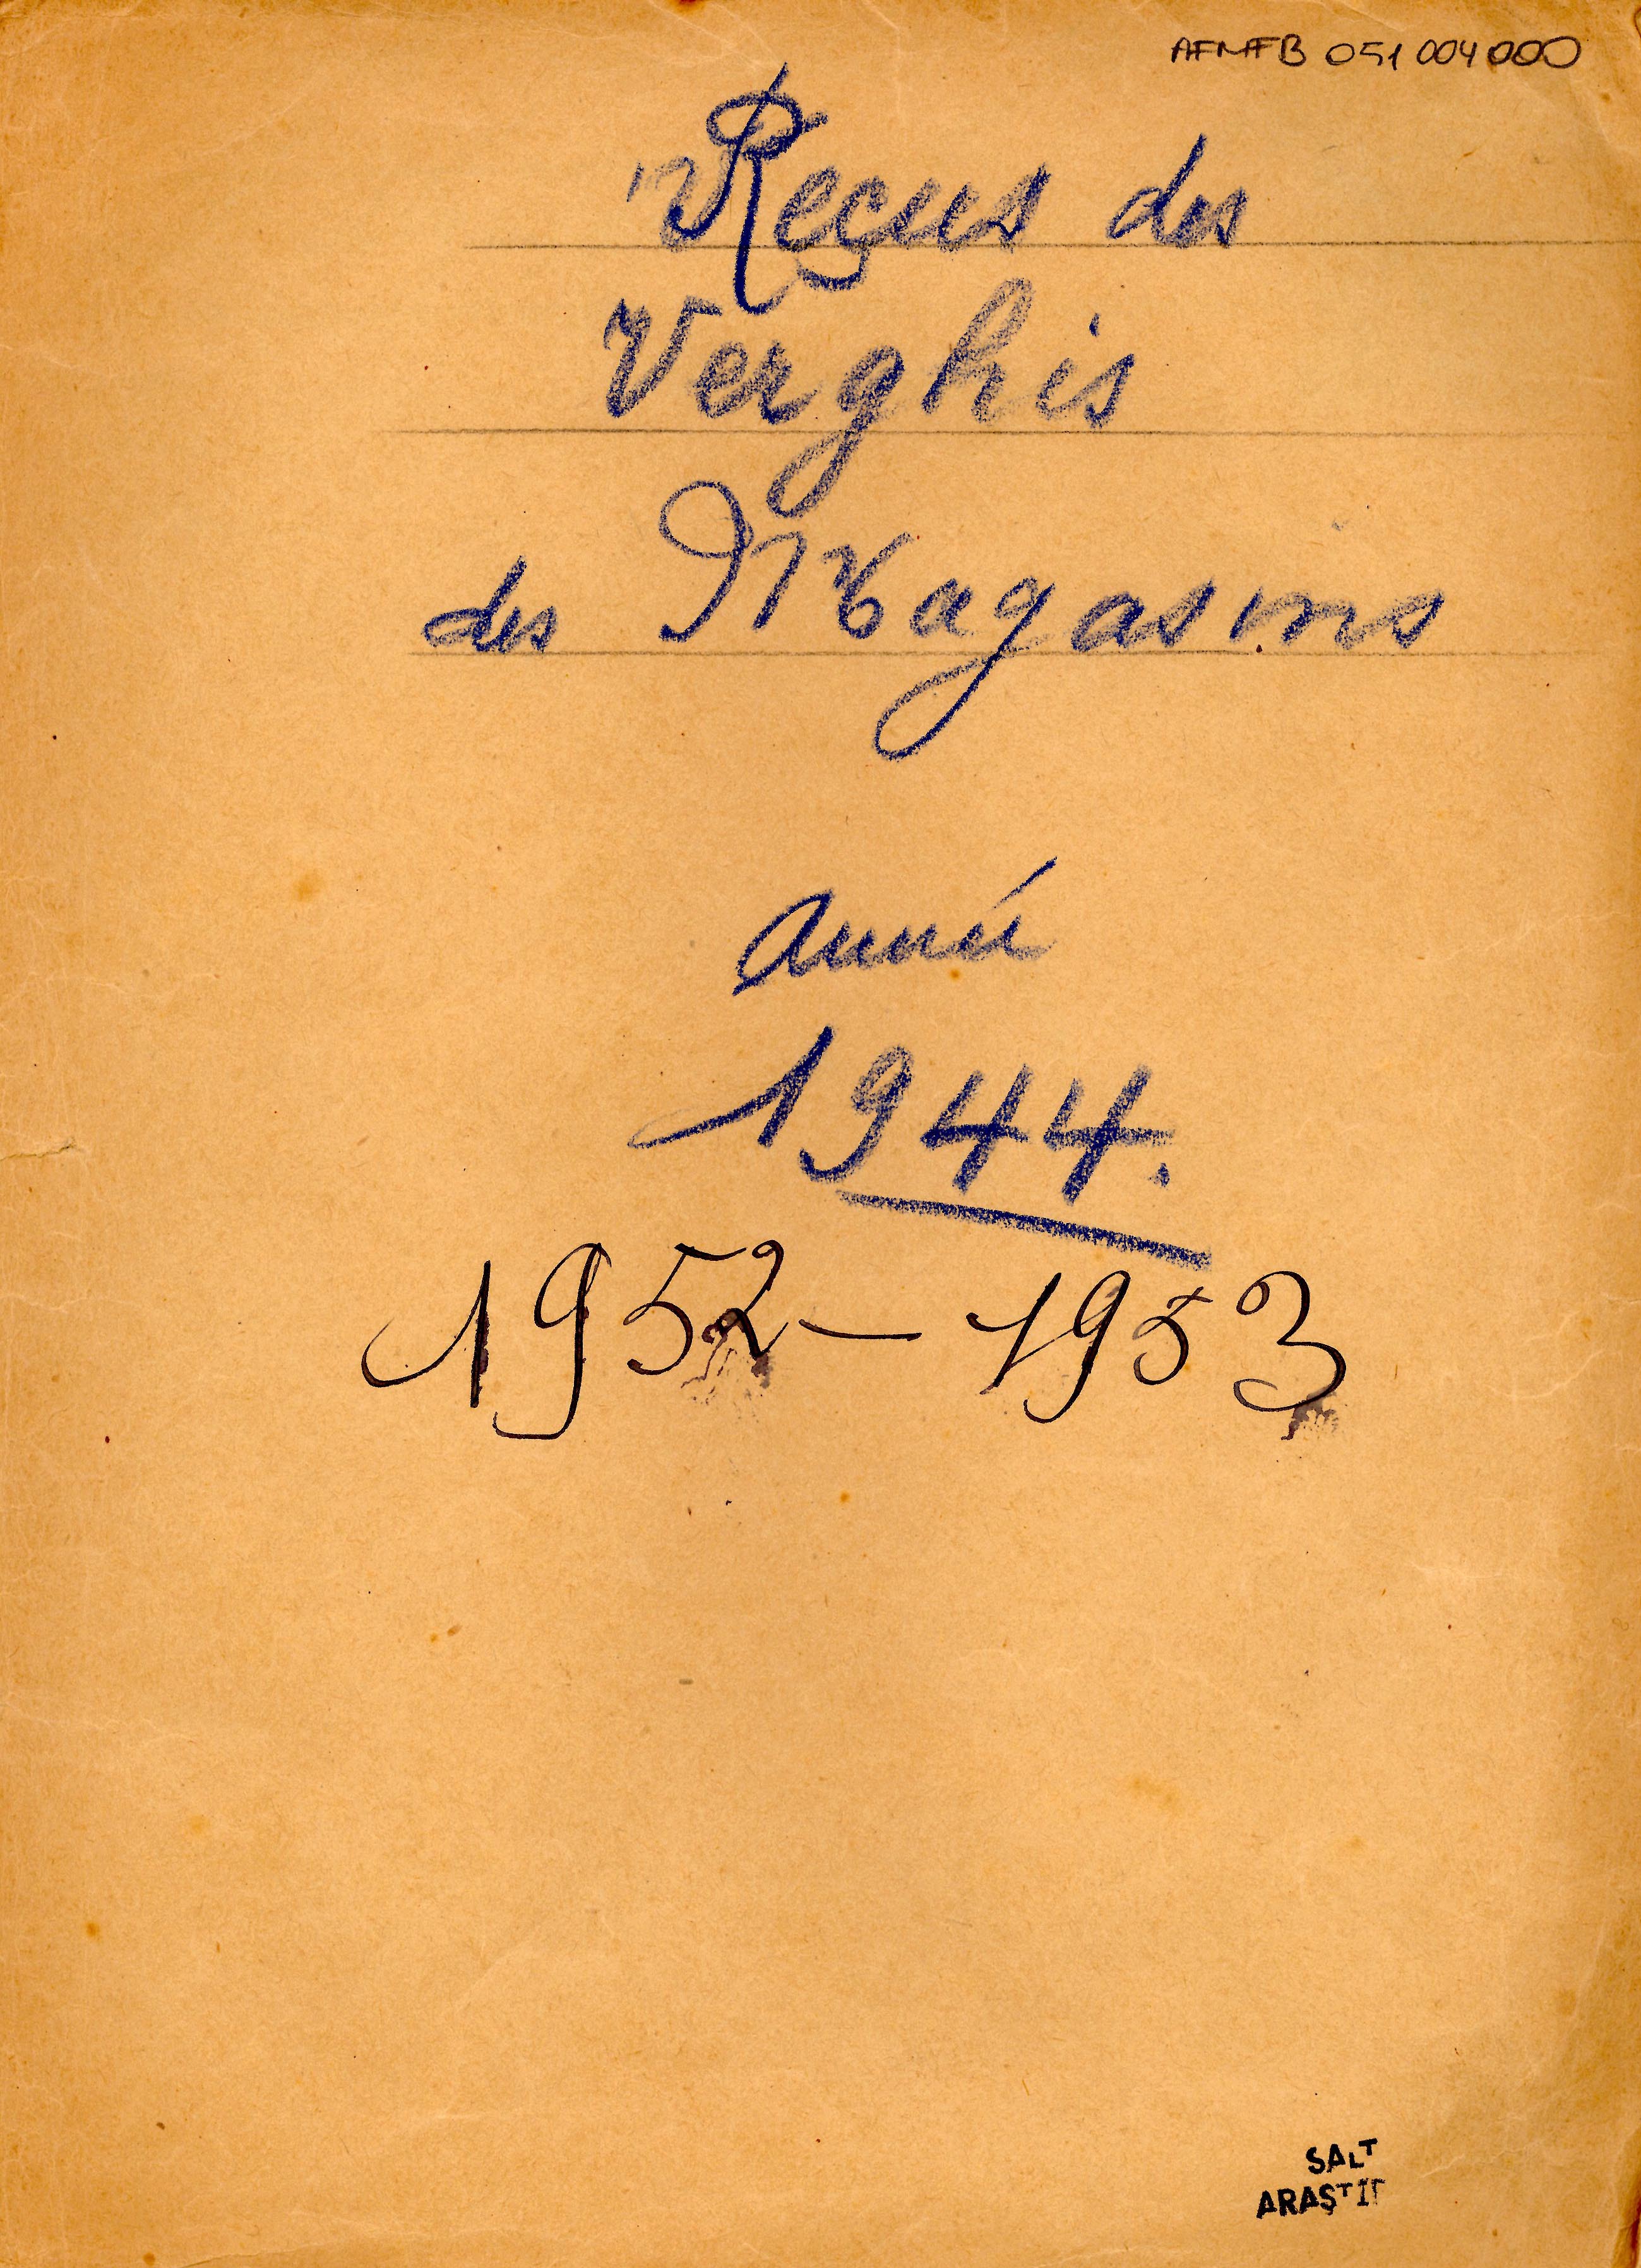 AFMFB 051 004 000
Reçus des
Verghis
des Magasins
Année
1944.
1952 — 1953
SALT
ARAŞTI